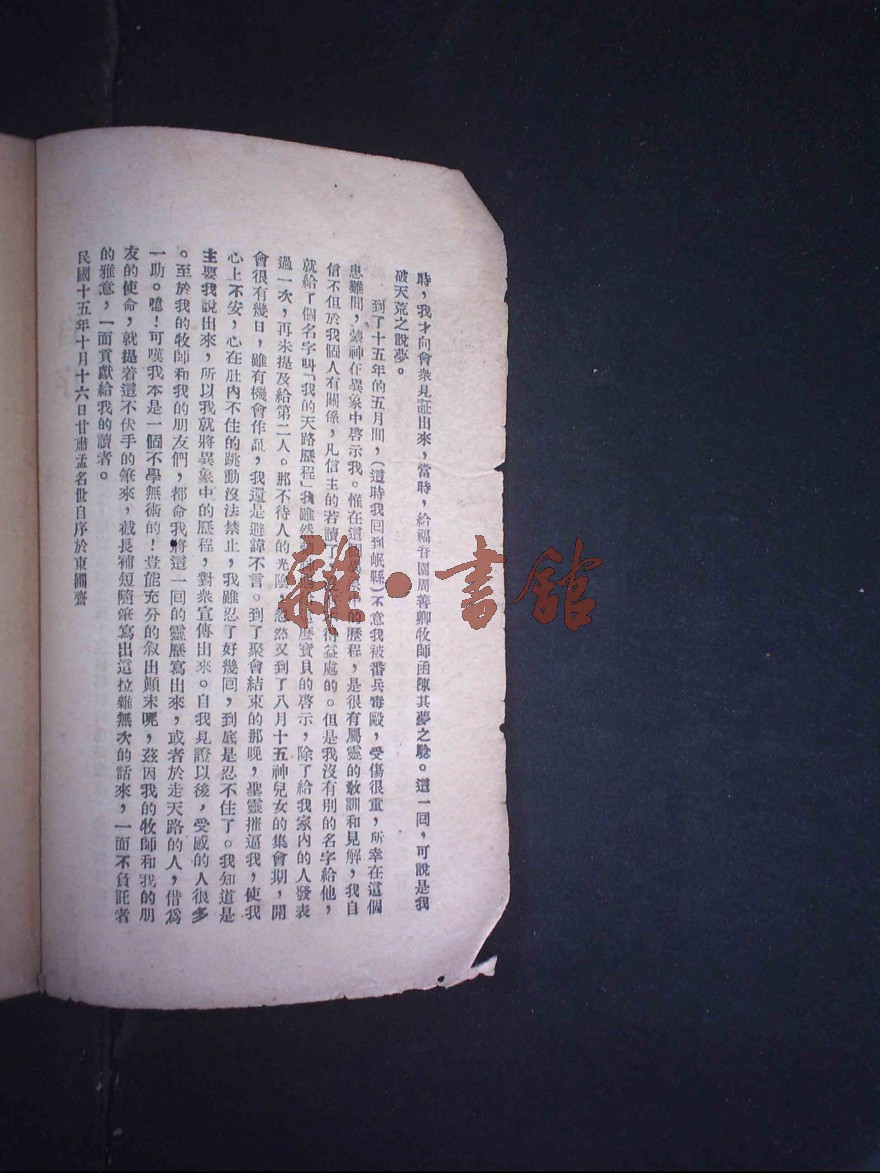 時，我才向會衆見証出來，當時，給福音園周善卿牧師函陳其夢之騐。這一回，可說是我
破天荒之說夢。
到了十五年的五月間，（這時我回到岷縣）不意我被番兵毒毆，受傷很重，所幸在這個
患難間，蒙神在異象中啓示我。惟在這個 的歷程，是很有屬靈的敎訓和見解，我自
信不但於我個人有關係，凡信主的若讀了 得益處的。但是我沒有別的名字給他，
就給了個名字叫「我的天路歷程」我雖然 麽寶貝的啓示，除了給我家內的人發表
過一次，再未提及給第二人。那不待人的光陰，忽然又到了八月十五神兒女的集會期，開
會很有幾日，雖有機會作証，我還是避諱不言。到了聚會結束的那晚，聖靈摧逼我，使我
心上不安，心在肚內不住的跳動沒法禁止，我雖忍了好幾回，到底是忍不住了。我知道是
主要我說出來，所以我就將異象中的歷程，對衆宣傳出來。自我見證以後，受感的人很多
。至於我的牧師和我的朋友們，都命我將這一回的靈歷寫出來，或者於走天路的人，借爲
一助。噫！可嘆我本是一個不學無術的！豈能充分的叙出顛末呢，茲因我的牧師和我的朋
友的使命，就提着這不伏手的筆來，截長補短隨筆寫出這拉雜無次的話來，一面不負託者
的雅意，一面貢獻給我的讀者。
民國十五年十月十六日甘肅孟名世自序於東圃齋
雜·書館